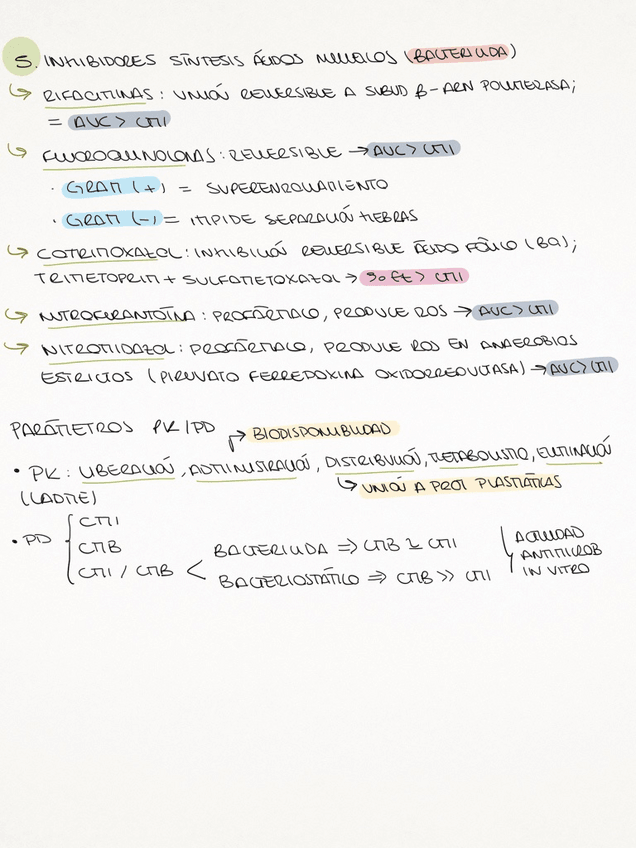 5. INHIBIDORES SÍNTESIS ÁCIDOS NUCLEICOS (BACTERICIDA)
↳ RIFAMICINAS : UNIÓN REVERSIBLE A SUBUD β-ARN POLIMERASA;
= AUC > CMI
↳ FLUOROQUINOLONAS : REVERSIBLE → AUC > CMI
· GRAM (+) = SUPERENROLLAMIENTO
· GRAM (-) = IMPIDE SEPARACIÓN HEBRAS
↳ COTRIMOXAZOL : INHIBICIÓN REVERSIBLE ÁCIDO FÓLICO (B9);
TRIMETOPRIM + SULFAMETOXAZOL → > CMI
↳ NITROFURANTOÍNA : PROFÁRMACO, PRODUCE ROS → AUC > CMI
↳ NITROMIDAZOL : PROFÁRMACO, PRODUCE ROS EN ANAEROBIOS
ESTRICTOS (PIRUVATO FERREDOXINA OXIDORREDUCTASA) → AUC > CMI
PARÁMETROS PK/PD
↱ BIODISPONIBILIDAD
• PK : LIBERACIÓN, ADMINISTRACIÓN, DISTRIBUCIÓN, METABOLISMO, ELIMINACIÓN
(LADME)
↳ UNIÓN A PROT PLASMÁTICAS
• PD
CMI
CMB
CMI / CMB <
BACTERICIDA ⇒ CMB ≥ CMI
BACTERIOSTÁTICO ⇒ CMB >> CMI
ACTIVIDAD
ANTIMICROB
IN VITRO